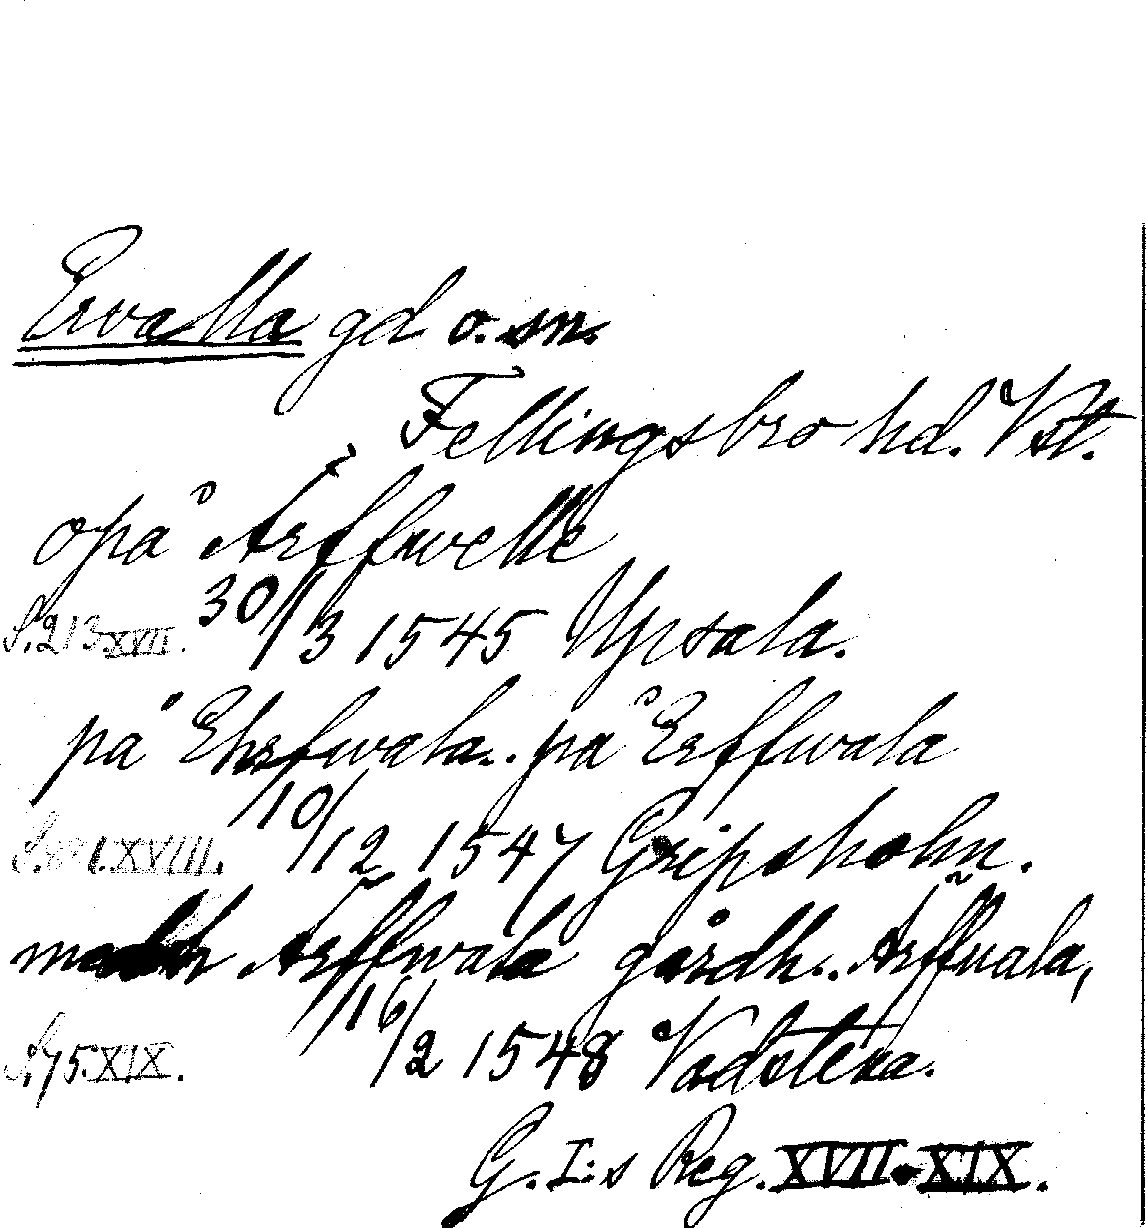 Ervalla gd o. sn.
Fellingsbro hd. Vstl.
opå Ärffwelle
S. 213 XVII. 30/3 1545 Upsala.
på Ehrfwala.. på Erffwala
XVIII. 10/12 1547 Gripsholm.
Ärffwala gårdh.. Ärffuala,
S. 75 XIX. 16/2 1548 Vadstena.
G. I:s Reg. XVII-XIX.